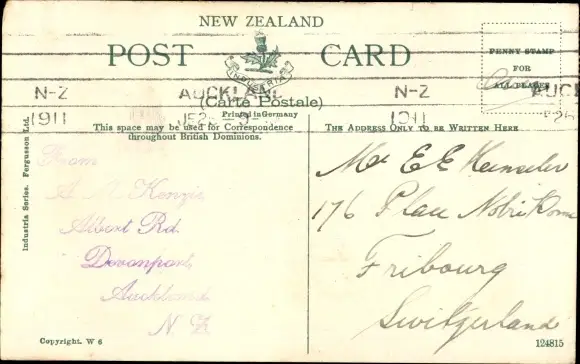 NEW ZEALAND
POST CARD
INDUSTRIA
(Carte Postale)
Printed in Germany
PENNY STAMP
FOR
ALL PLACES
N-Z AUCKLAND N-Z AUCK
1911 JE26 1911
This space may be used for Correspondence
throughout British Dominions.
THE ADDRESS ONLY TO BE WRITTEN HERE
Industria Series. Fergusson Ltd.
From
A M Kenzie
Albert Rd.
Devonport
Auckland
N Z
Mr E E
176 Place
Fribourg
Switzerland
Copyright. W 6
124815